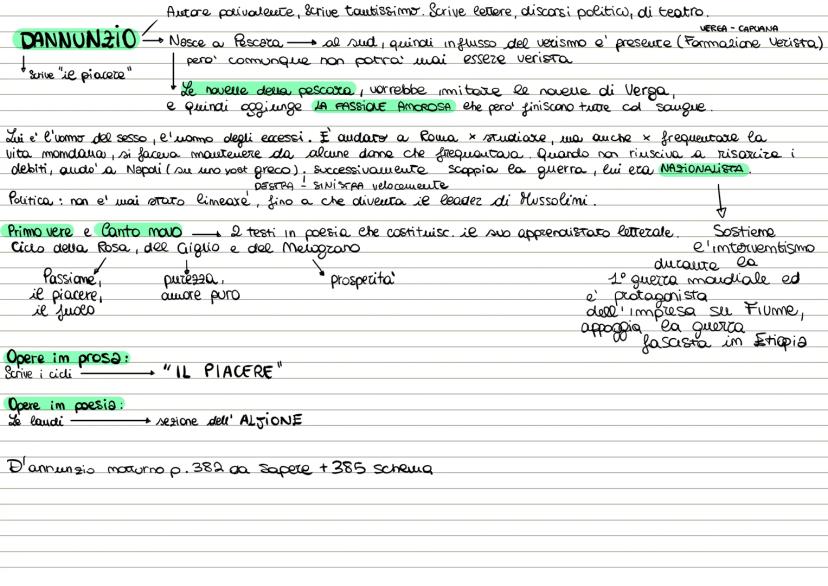 Autore polivalente, scrive tantissimo. Scrive lettere, discorsi politici, di teatro.
VERGA - CAPUANA
DANNUNZIO → Nasce a Pescara → al sud, quindi influsso del verismo e' presente (Formazione Verista)
pero' comunque non potra' mai essere verista
scrive "il piacere"
Le novelle della pescara, vorrebbe imitare le novelle di Verga,
e quindi aggiunge LA PASSIONE AMOROSA che pero' finiscono tutte col sangue.
Lui e' l'uomo del sesso, e' uomo degli eccessi. È andato a Roma x studiare, ma anche x frequentare la
vita mondana, si faceva mantenere da alcune dame che frequentava. Quando non riusciva a risarcire i
debiti, ando' a Napoli (su uno yost greco); successivamente scappia la guerra, lui era NAZIONALISTA.
DESTRA - SINISTRA velocemente
Politica: non e' mai stato lineare, fino a che diventa il leader di Mussolini.
Primo vere e Canto novo → 2 testi in poesia che costituisc. il suo apprendistato letterale.
Ciclo della Rosa, del Giglio e del Melograno
Passione,
il piacere,
il fuoco
purezza,
amore puro
prosperita'
Sostiene
l'interventismo
durante la
1° guerra mondiale ed
e' protagonista
dell'impresa su Fiume,
appoggia la guerra
fascista in Etiopia
Opere in prosa:
Scrive i cicli → "IL PIACERE"
Opere in poesia:
Le laudi → sezione dell' ALJIONE
D'annunzio notturno p.382 da sapere + 385 schema